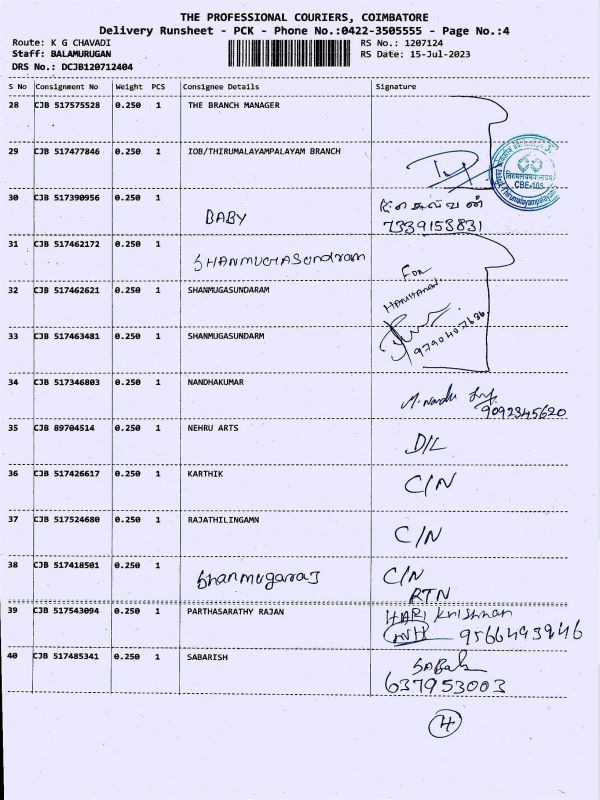 THE PROFESSIONAL COURIERS, COIMBATORE
Delivery Runsheet - PCK - Phone No.:0422-3505555 - Page No.:4
Route: K G CHAVADI RS No.: 1207124
Staff: BALAMURUGAN RS Date: 15-Jul-2023
DRS No.: DCJB120712404
S No Consignment No Weight PCS Consignee Details Signature
28 CJB 517575528 0.250 1 THE BRANCH MANAGER
29 CJB 517477846 0.250 1 IOB/THIRUMALAYAMPALAYAM BRANCH
CBE-105
30 CJB 517390956 0.250 1
BABY
7339153831
31 CJB 517462172 0.250 1
SHANMUGHASundram
For
32 CJB 517462621 0.250 1 SHANMUGASUNDARAM
9790407636
33 CJB 517463481 0.250 1 SHANMUGASUNDARM
34 CJB 517346803 0.250 1 NANDHAKUMAR
M. Nandhu
9092345620
35 CJB 89704514 0.250 1 NEHRU ARTS
D/L
36 CJB 517426617 0.250 1 KARTHIK
C/N
37 CJB 517524680 0.250 1 RAJATHILINGAMN
C/N
38 CJB 517418501 0.250 1
Shanmugaraj C/N
RTN
39 CJB 517543094 0.250 1 PARTHASARATHY RAJAN HARI Krishnan
9566493946
40 CJB 517485341 0.250 1 SABARISH
637953003
4